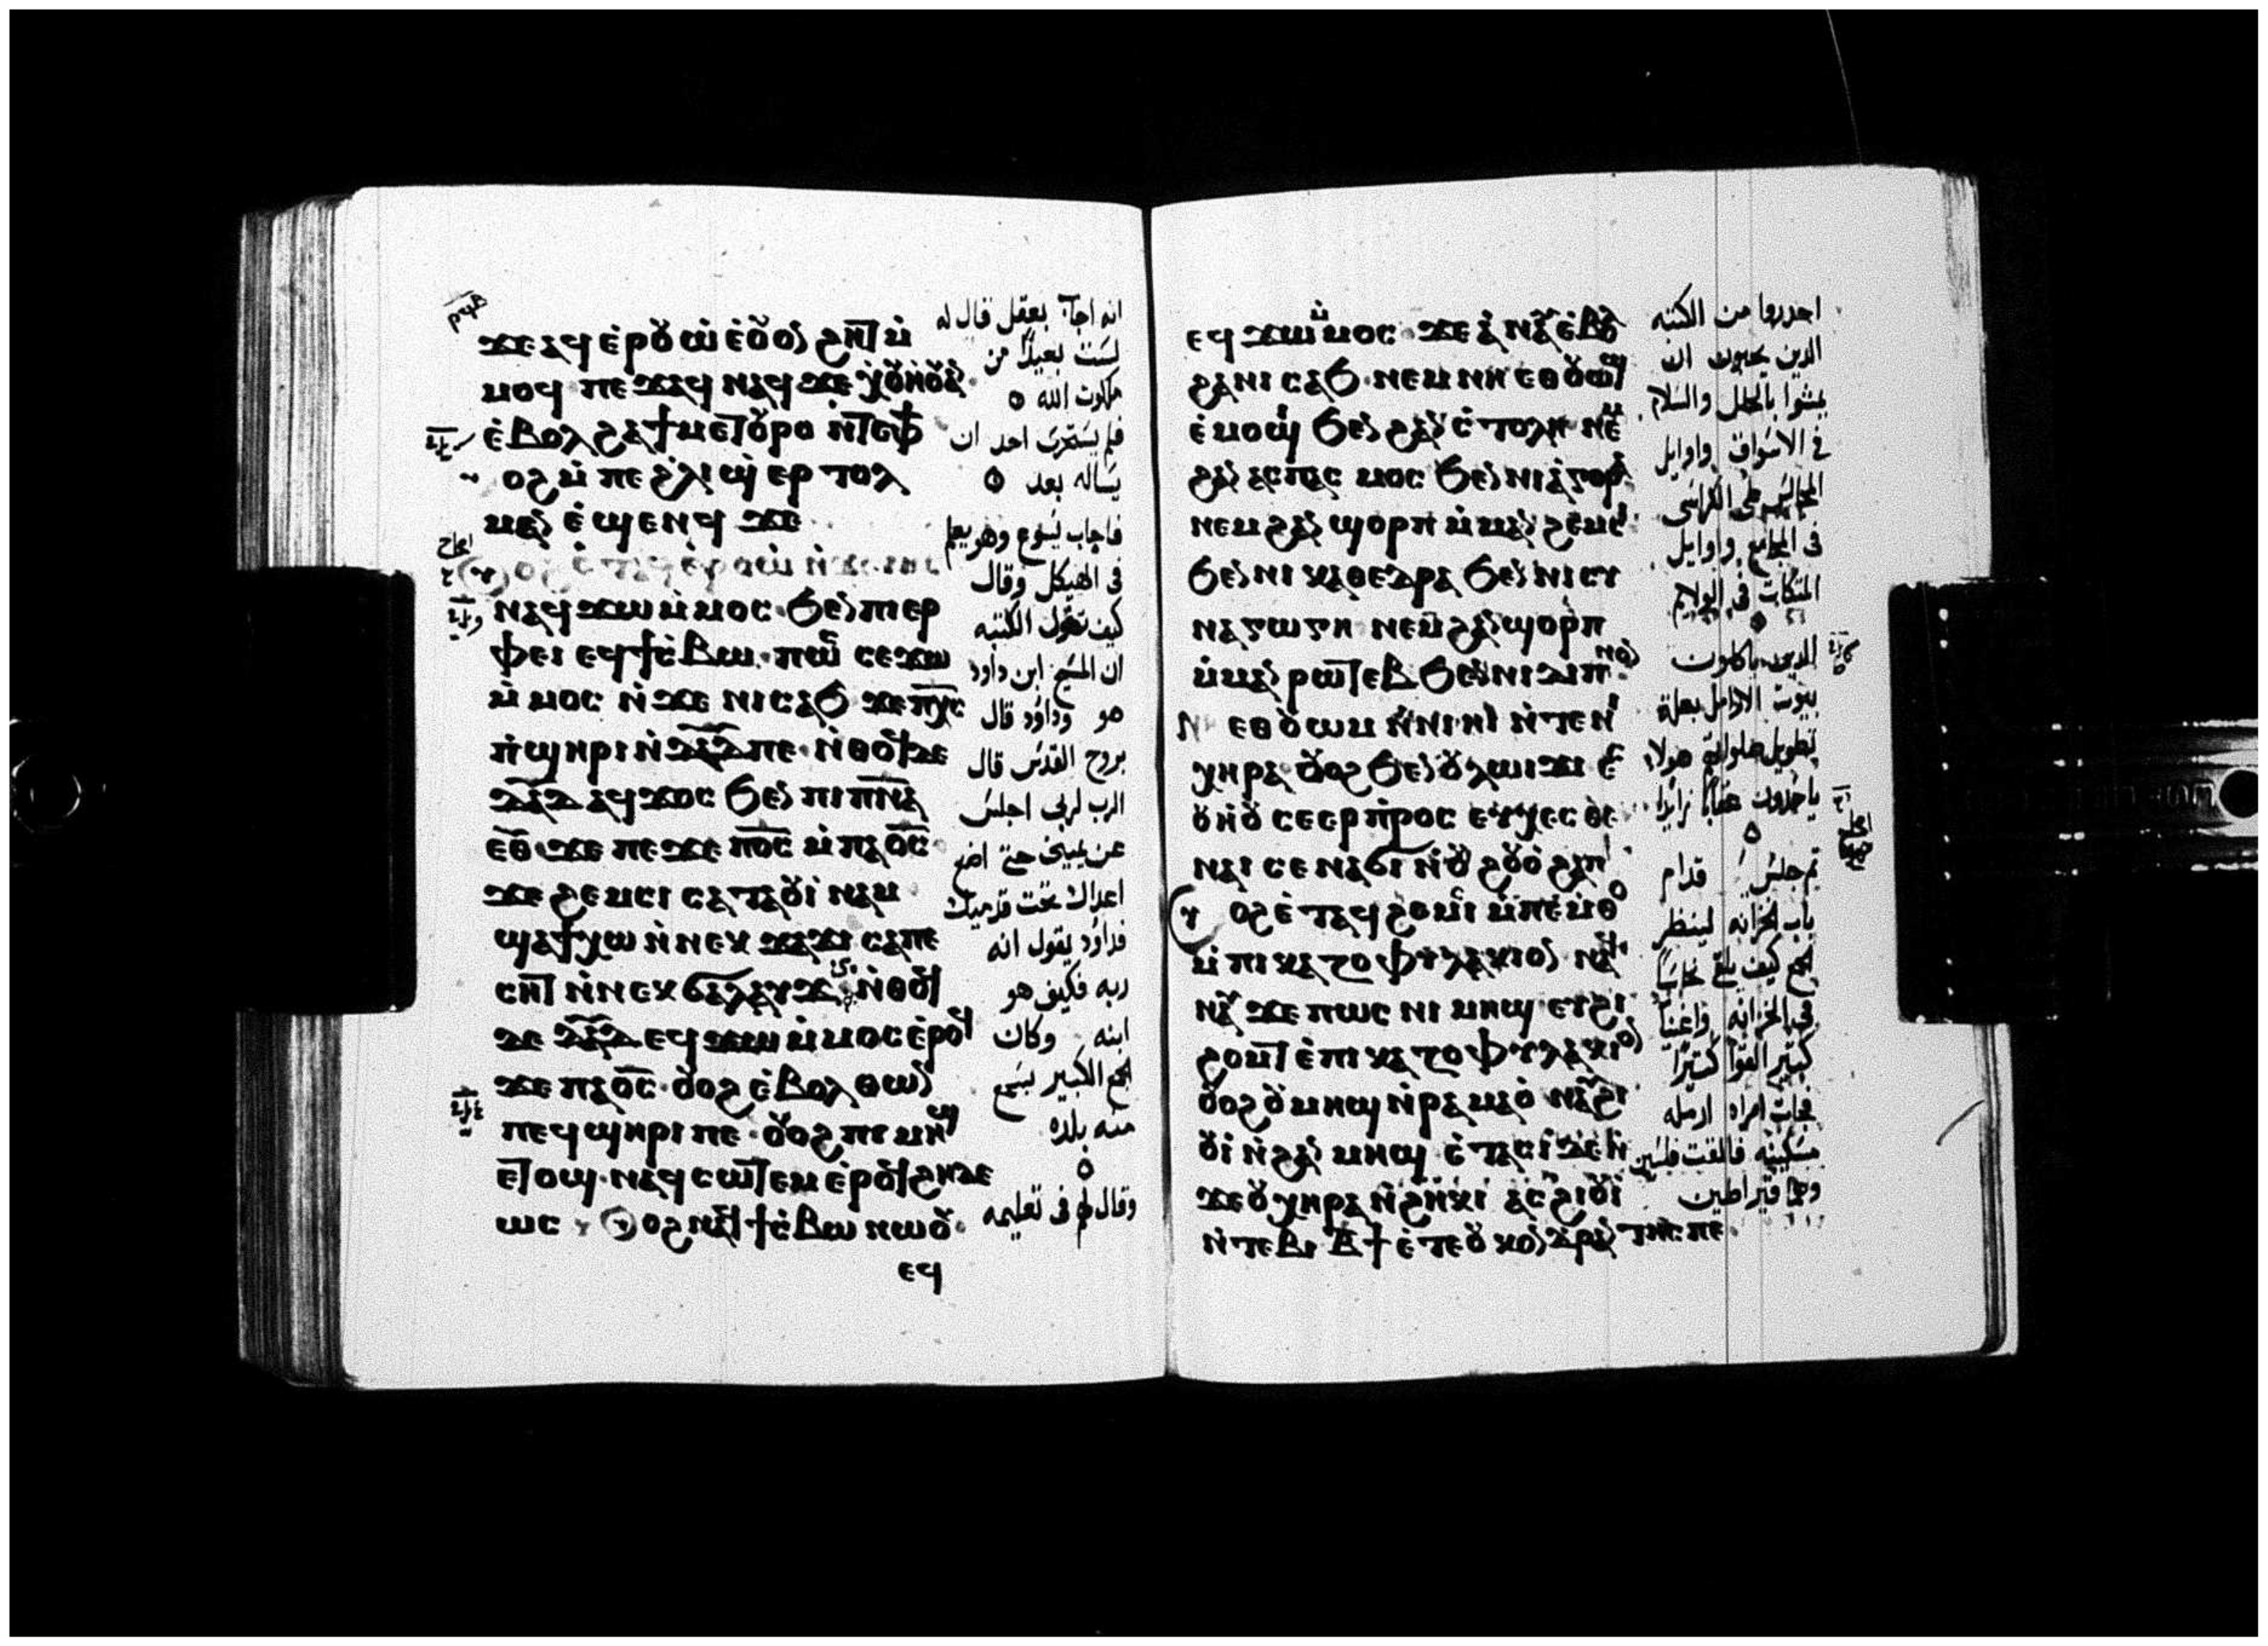 ϫⲉⲁϥⲉⲣⲟⲩⲱ ⲉⲟⲩⲟⲛ ϩⲏⲧ ⲙ̀
ⲙⲟϥ ⲡⲉϫⲁϥ ⲛⲁϥ ϫⲉ ⲭⲟⲩⲏⲟⲩⲁⲛ
ⲉ̀ⲃⲟⲗ ϩⲁϯⲙⲉⲧⲟⲩⲣⲟ ⲛ̀ⲧⲉⲫϯ
ⲟϩ ⲙ̀ⲡⲉ ϩⲗⲓ ϣ ⲉⲣ ⲧⲟⲗ
ⲙⲁⲛ ⲉ̀ϣⲉⲛϥ ϫⲉ
ⲛⲁϥϫⲱ ⲙ̀ⲙⲟⲥ ϧⲉⲛ ⲡⲓⲉⲣ
ⲫⲉⲓ ⲉϥϯⲥⲃⲱ ⲡⲱⲥ ⲥⲉϫⲱ
ⲙ̀ⲙⲟⲥ ⲛ̀ϫⲉ ⲛⲓⲥⲁϧ ϫⲉ ⲡⲭⲥ
ⲡ̀ϣⲏⲣⲓ ⲛ̀ⲇⲁⲇ ⲡⲉ ⲛ̀ⲑⲟϥ ⲇⲉ
ⲇⲁⲇ ⲁϥϫⲟⲥ ϧⲉⲛ ⲡⲓⲡⲛⲁ
ⲉⲑ ϫⲉ ⲡⲉϫⲉ ⲡⲟⲥ ⲙ̀ⲡⲁⲟⲥ
ϫⲉ ϩⲉⲙⲥⲓ ⲥⲁⲧⲁⲟⲩⲓ ⲛⲁⲙ
ϣⲁϯⲭⲱ ⲛ̀ⲛⲉⲕ ϫⲁϫⲓ ⲥⲁⲡⲉ
ⲥⲏⲧ ⲛ̀ⲛⲉⲕ ϭⲁⲗⲁⲩϫ ⲛ̀ⲑⲟϥ
ⲇⲉ ⲇⲁⲇ ⲉϥϫⲱ ⲙ̀ⲙⲟⲥ ⲉ̀ⲣⲟϥ
ϫⲉ ⲡⲁⲟⲥ ⲟⲩⲟϩ ⲉ̀ⲃⲟⲗ ⲑⲱⲛ
ⲡⲉϥϣⲏⲣⲓ ⲡⲉ ⲟⲩⲟϩ ⲡⲓⲙⲏϣ
ⲉⲧⲟϣ ⲛⲁϥⲥⲱⲧⲉⲙ ⲉ̀ⲣⲟϥ ϩⲏⲇⲉ
ⲱⲥ ⲟϩ ⲛⲁϥ ϯⲥⲃⲱ ⲛⲱⲟⲩ
ⲉϥ
انه اجاب بعقل قال له
لست بعيدًا من
ملكوت الله
فلم يستجرى احد ان
يساله بعد
فاجاب يسوع وهو يعلم
فى الهيكل وقال
كيف تقول الكتبه
ان المسيح ابن داود
هو وداود قال
بروح القدس قال
الرب لربى اجلس
عن يمينى حتى اضع
اعداك تحت قدميك
فداود يقول انه
ربه فكيف هو
ابنه وكان
الجمع الكبير يسمع
منه بلده
وقال لهم فى تعليمه
ⲉϥϫⲱ ⲙ̀ⲙⲟⲥ ϫⲉ ⲁⲛⲁⲩ ⲉ̀ⲃⲟⲗ
ϩⲁ ⲛⲓⲥⲁϧ ⲛⲉⲙ ⲛⲏ ⲉⲑⲟⲩⲱϣ
ⲉ̀ⲙⲟϣⲓ ϧⲉⲛ ϩⲁⲛ ⲥⲧⲟⲗⲏ ⲛⲉⲙ
ϩⲁⲛ ⲁⲥⲡⲁⲥⲙⲟⲥ ϧⲉⲛ ⲛⲓⲁⲅⲟⲣⲁ
ⲛⲉⲙ ϩⲁⲛ ϣⲟⲣⲡ ⲙ̀ⲙⲁⲛ ϩⲉⲙⲥⲓ
ϧⲉⲛ ⲛⲓ ⲕⲁⲑⲉⲇⲣⲁ ϧⲉⲛ ⲛⲓⲥⲩ
ⲛⲁⲅⲱⲅⲏ ⲛⲉⲙ ϩⲁⲛ ϣⲟⲣⲡ
ⲙ̀ⲙⲁⲛ ⲣⲱⲧⲉⲃ ϧⲉⲛ ⲛⲓⲇⲓⲡⲛⲟⲛ
ⲛⲏ ⲉⲑⲟⲩⲱⲙ ⲛ̀ⲛⲓⲏⲓ ⲛ̀ⲧⲉ ⲛⲓ
ⲭⲏⲣⲁ ⲟⲩⲟϩ ϧⲉⲛ ⲟⲩⲗⲱⲓϫⲓ ⲉ
ⲟⲩⲏⲟⲩ ⲥⲉⲉⲣ ⲡⲣⲟⲥ ⲉⲩⲭⲉⲥⲑⲉ
ⲛⲁⲓ ⲥⲉⲛⲁϭⲓ ⲛ̀ⲟⲩ ϩⲟⲩⲟ ϩⲁⲡ
ⲟϩ ⲉ̀ⲧⲁϥϩⲉⲙⲥⲓ ⲙ̀ⲡⲉⲙⲑⲟ
ⲙ̀ⲡⲓ ⲕⲁⲍⲟⲫⲩⲗⲁⲕⲓⲟⲛ ⲛⲁϥ
ⲛⲁⲩ ϫⲉ ⲡⲱⲥ ⲛⲓ ⲙⲏϣ ⲉⲧϩⲓ
ϩⲟⲙⲧ ⲉ̀ⲡⲓⲕⲁⲍⲟⲫⲩⲗⲁⲕⲓⲟⲛ
ⲟⲩⲟϩ ⲟⲩⲙⲏϣ ⲛ̀ⲣⲁⲙⲁⲟ ⲛⲁⲩϩⲓ
ⲟⲩⲓ ⲛ̀ϩⲁⲛ ⲙⲏϣ ⲉ̀ⲧⲁⲥⲓ ⲇⲉ ⲛ̀
ϫⲉ ⲟⲩⲭⲏⲣⲁ ⲛ̀ϩⲏⲕⲓ ⲁⲥϩⲓⲟⲩⲓ
ⲛ̀ⲧⲉⲃⲓ ⲃ̄ϯ ⲉ̀ⲧⲉ ⲟⲩⲕⲟⲛⲇⲣⲁⲛⲧⲏⲥ ⲡⲉ
احدروا من الكتبه
الدين يحبون ان
يمشوا بالحلل والسلام
فى الاسواق واوايل
المجالس على الكراسى
فى المجامع واوايل
المتكات فى الولايم
الدين ياكلون
بيوت الارامل بعلة
تطويل صلواتهم هولاء
ياخدون عقابًا زايدا
تم جلس قدام
باب الخزانه لينظر
الجمع كيف يلقى نحاسًا
فى الخزانه واغنيا
كتير القوا كتيرًا
فجات امراه ارمله
مسكينه فالقت فلسين
وهما قيراطين